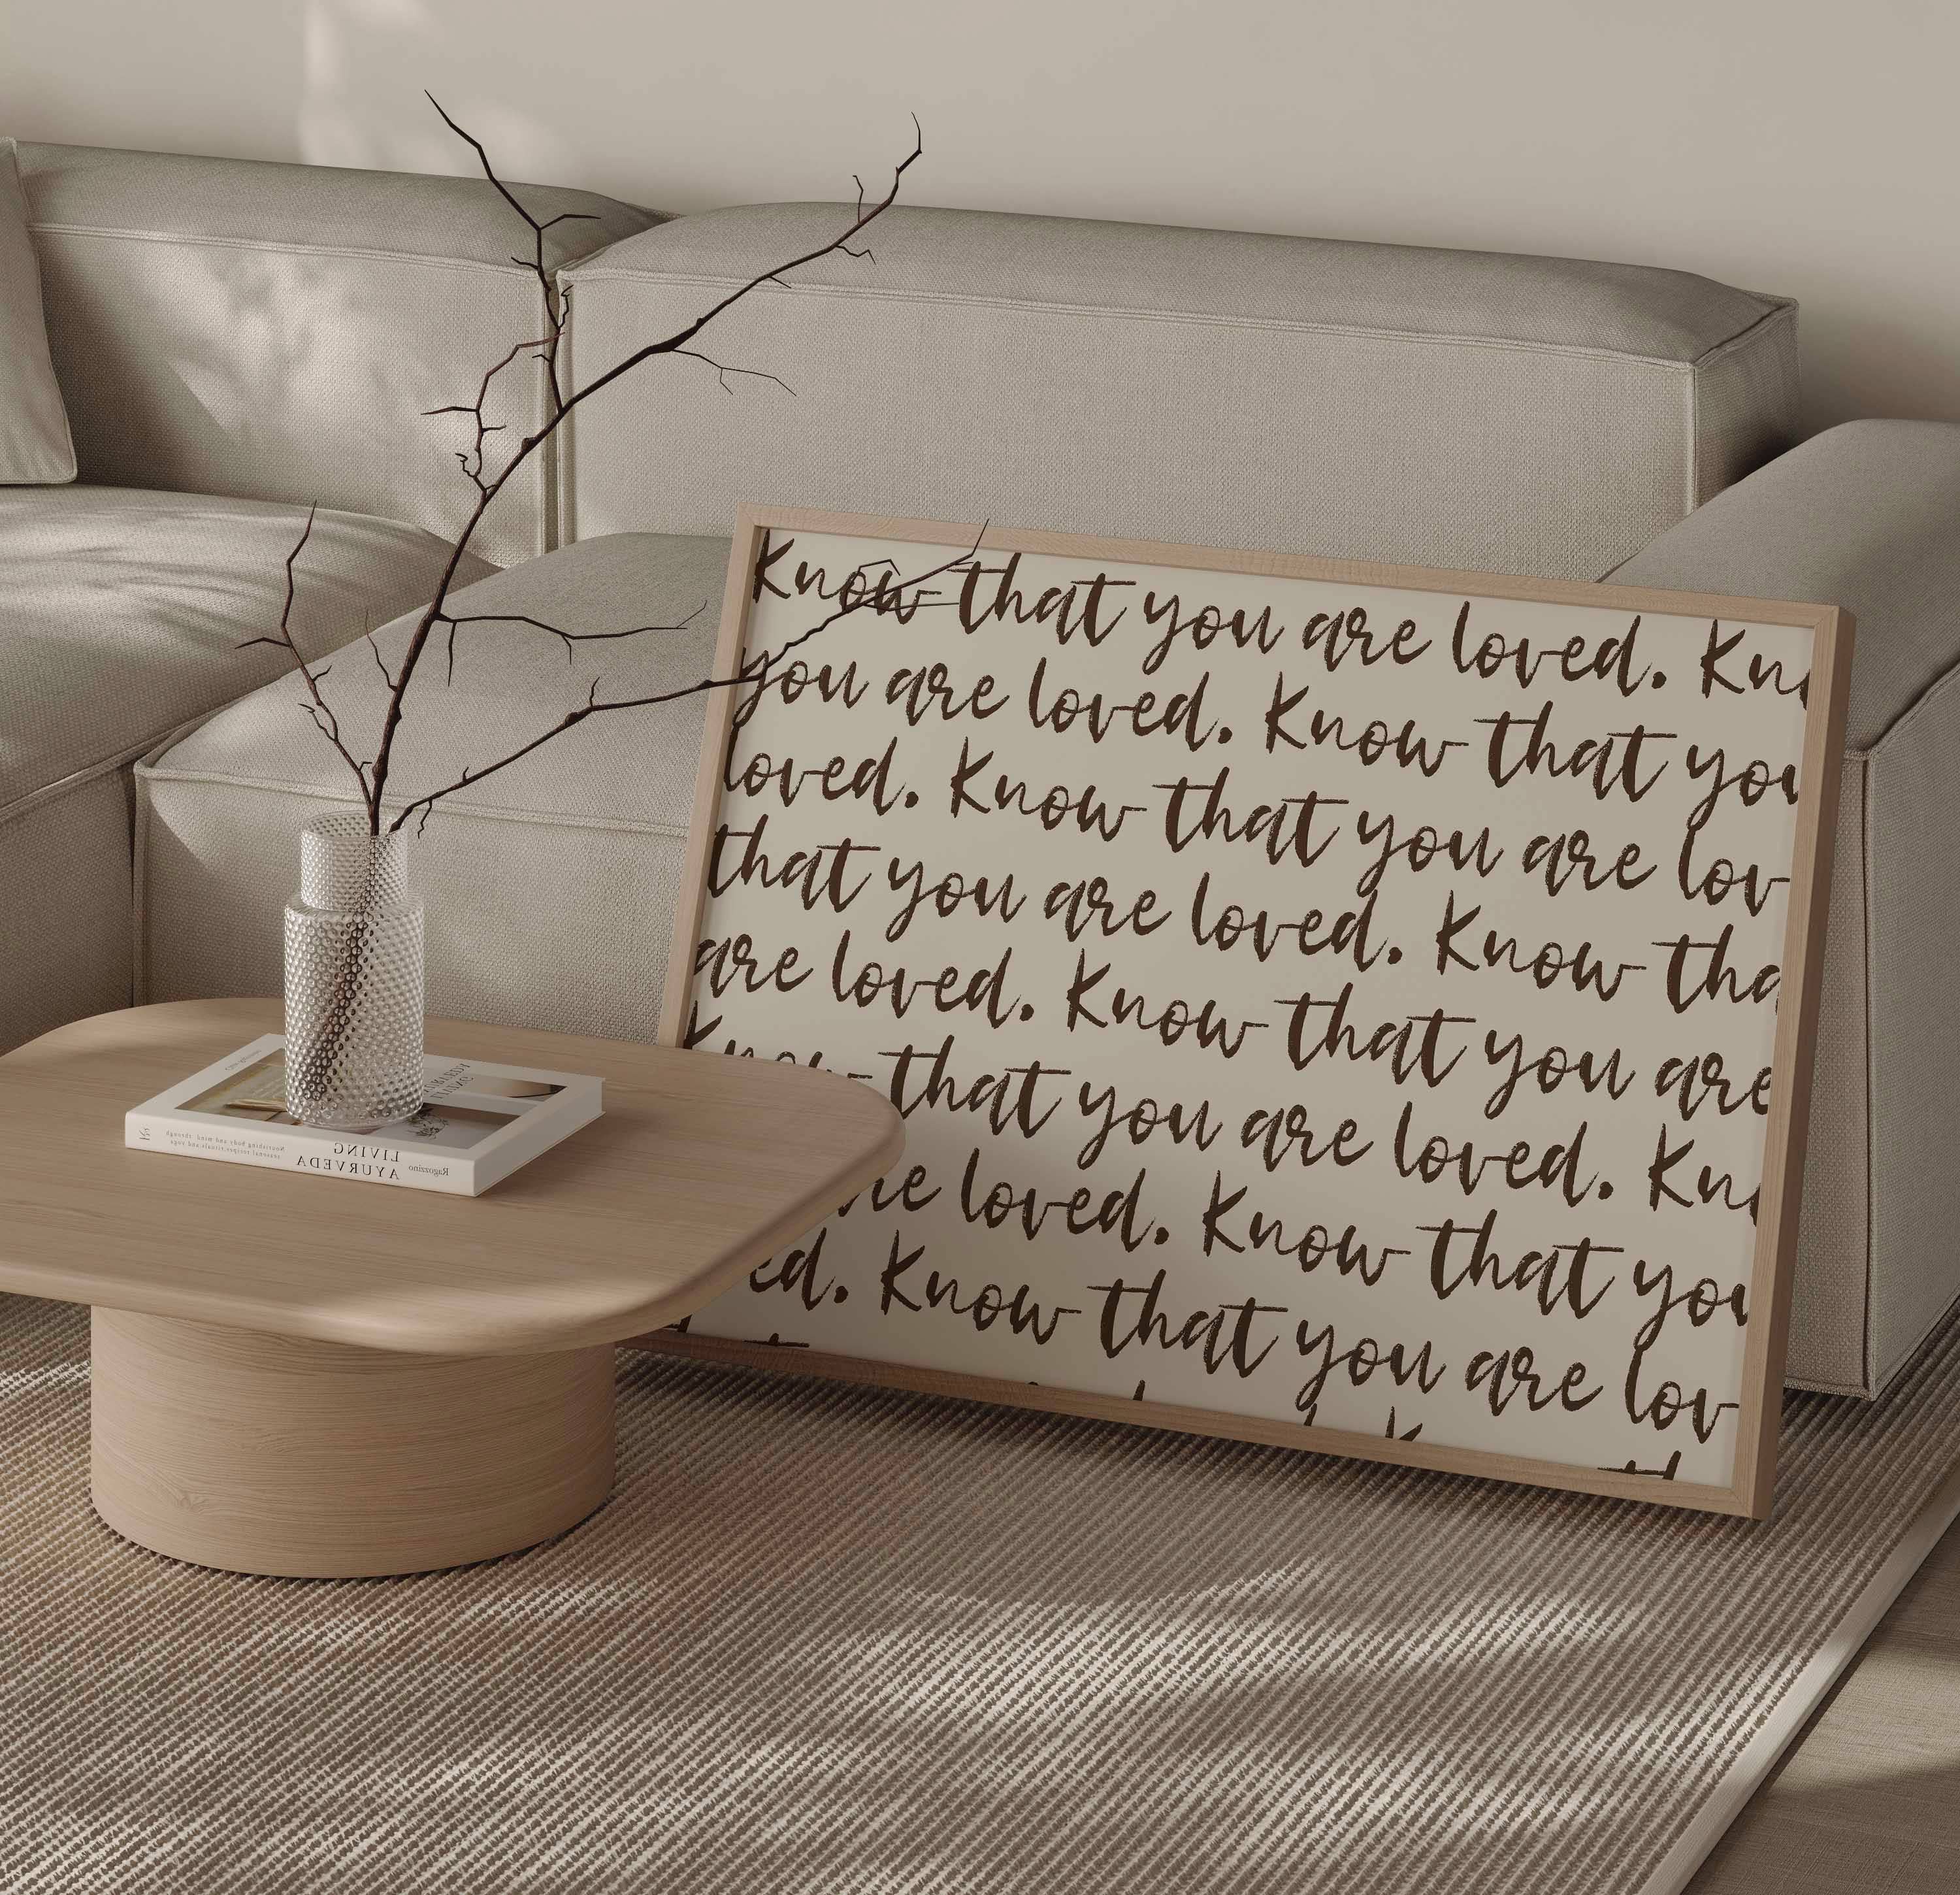 Know that you are loved. Kn
you are loved. Know that you
loved. Know that you are lov
that you are loved. Know tha
are loved. Know that you are
Know that you are loved. Kn
are loved. Know that you
ed. Know that you are lov
LIVING
AYURVEDA
Ragozzino
Nourishing body and mind through
seasonal recipes, rituals and yoga